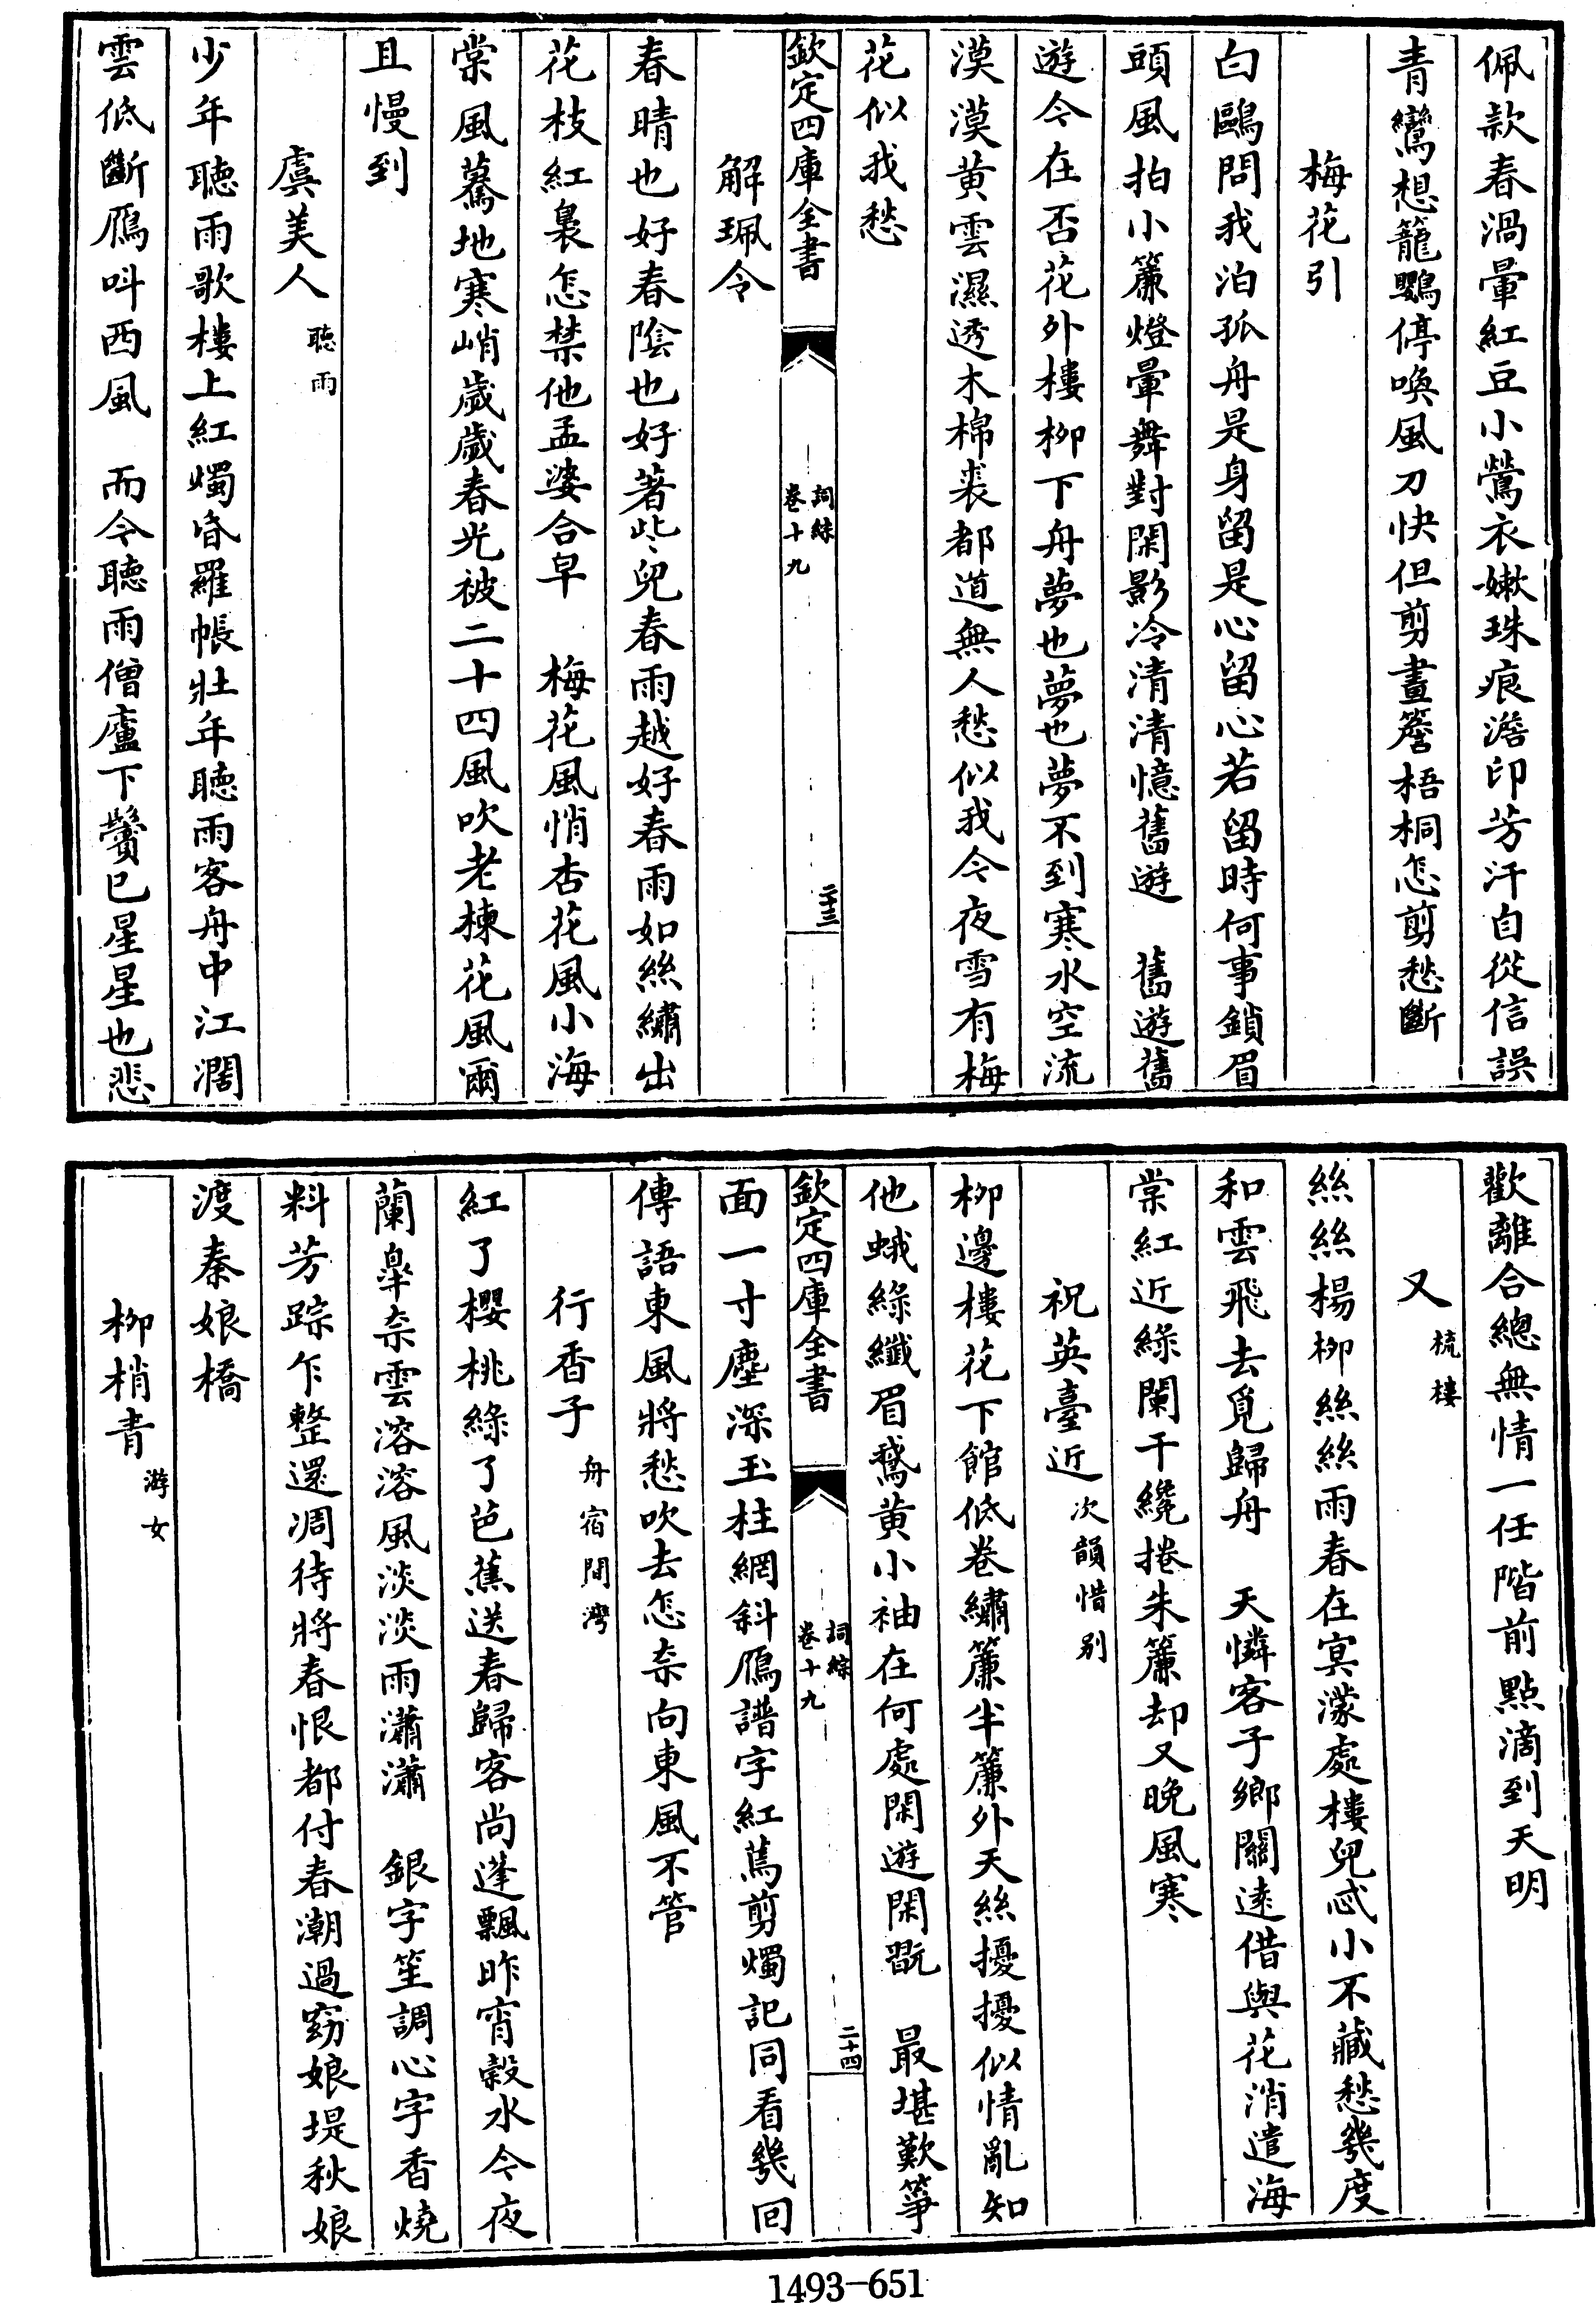 佩款春渦暈紅豆小鶯衣嫩珠痕澹印芳汗自從信誤
青鸞想籠鸚停喚風刀快但剪畫簷梧桐怎剪愁斷
梅花引
白鷗問我泊孤舟是身留是心留心若留時何事鎖眉
頭風拍小簾燈暈舞對閑影冷清清憶舊遊　舊遊舊
遊今在否花外樓柳下舟夢也夢也夢不到寒水空流
漠漠黃雲濕透木棉裘都道無人愁似我今夜雪有梅
花似我愁
欽定四庫全書
詞綜
卷十九
二十三
解珮令
春晴也好春陰也好著些兒春雨越好春雨如絲繡出
花枝紅裊怎禁他孟婆合早　梅花風悄杏花風小海
棠風驀地寒峭歲歲春光被二十四風吹老楝花風爾
且慢到
虞美人 聽雨
少年聽雨歌樓上紅燭昏羅帳壯年聽雨客舟中江濶
雲低斷鴈呌西風　而今聽雨僧廬下鬢已星星也悲
歡離合總無情一任階前點滴到天明
又 梳樓
絲絲楊柳絲絲雨春在寞濛處樓兒忒小不藏愁幾度
和雲飛去覓歸舟　天憐客子鄉關遠借與花消遣海
棠紅近綠闌干纔捲朱簾却又晚風寒
祝英臺近 次韻惜别
柳邊樓花下館低卷繡簾半簾外天絲擾擾似情亂知
他蛾綠纖眉鵞黃小袖在何處閑遊閑翫　最堪歎箏
欽定四庫全書
詞綜
卷十九
二十四
面一寸塵深玉柱網斜鴈譜字紅蔫剪燭記同看幾回
傳語東風將愁吹去怎奈向東風不管
行香子 舟宿間灣
紅了櫻桃綠了芭蕉送春歸客尚蓬飄昨宵榖水今夜
蘭臯奈雲溶溶風淡淡雨瀟瀟　銀字笙調心字香燒
料芳踪乍整還凋待將春恨都付春潮過窈娘堤秋娘
渡秦娘橋
柳梢青 游女
1493-651